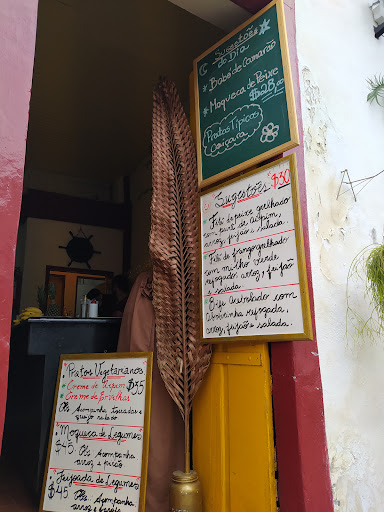 Sugestões
do Dia
* Bobó de Camarão
* Moqueca de Peixe
$28,00
Pratos Típicos
Caiçara
Sugestões $30
Filé de peixe grelhado
com purê de Aipim,
arroz, feijão e salada
Filé de frango grelhado
com milho verde
refogado arroz, feijão
e salada
Bife Acebolado com
refogada,
arroz, feijão e salada.
Pratos Vegetarianos
* Creme de Aipim $35
* Creme de Ervilhas
Obs: Acompanha torradas e
queijo ralado
* Moqueca de Legumes
$45 Obs Acompanha
arroz e pirão
* Feijoada de Legumes
$45 Obs. Acompanha
arroz e